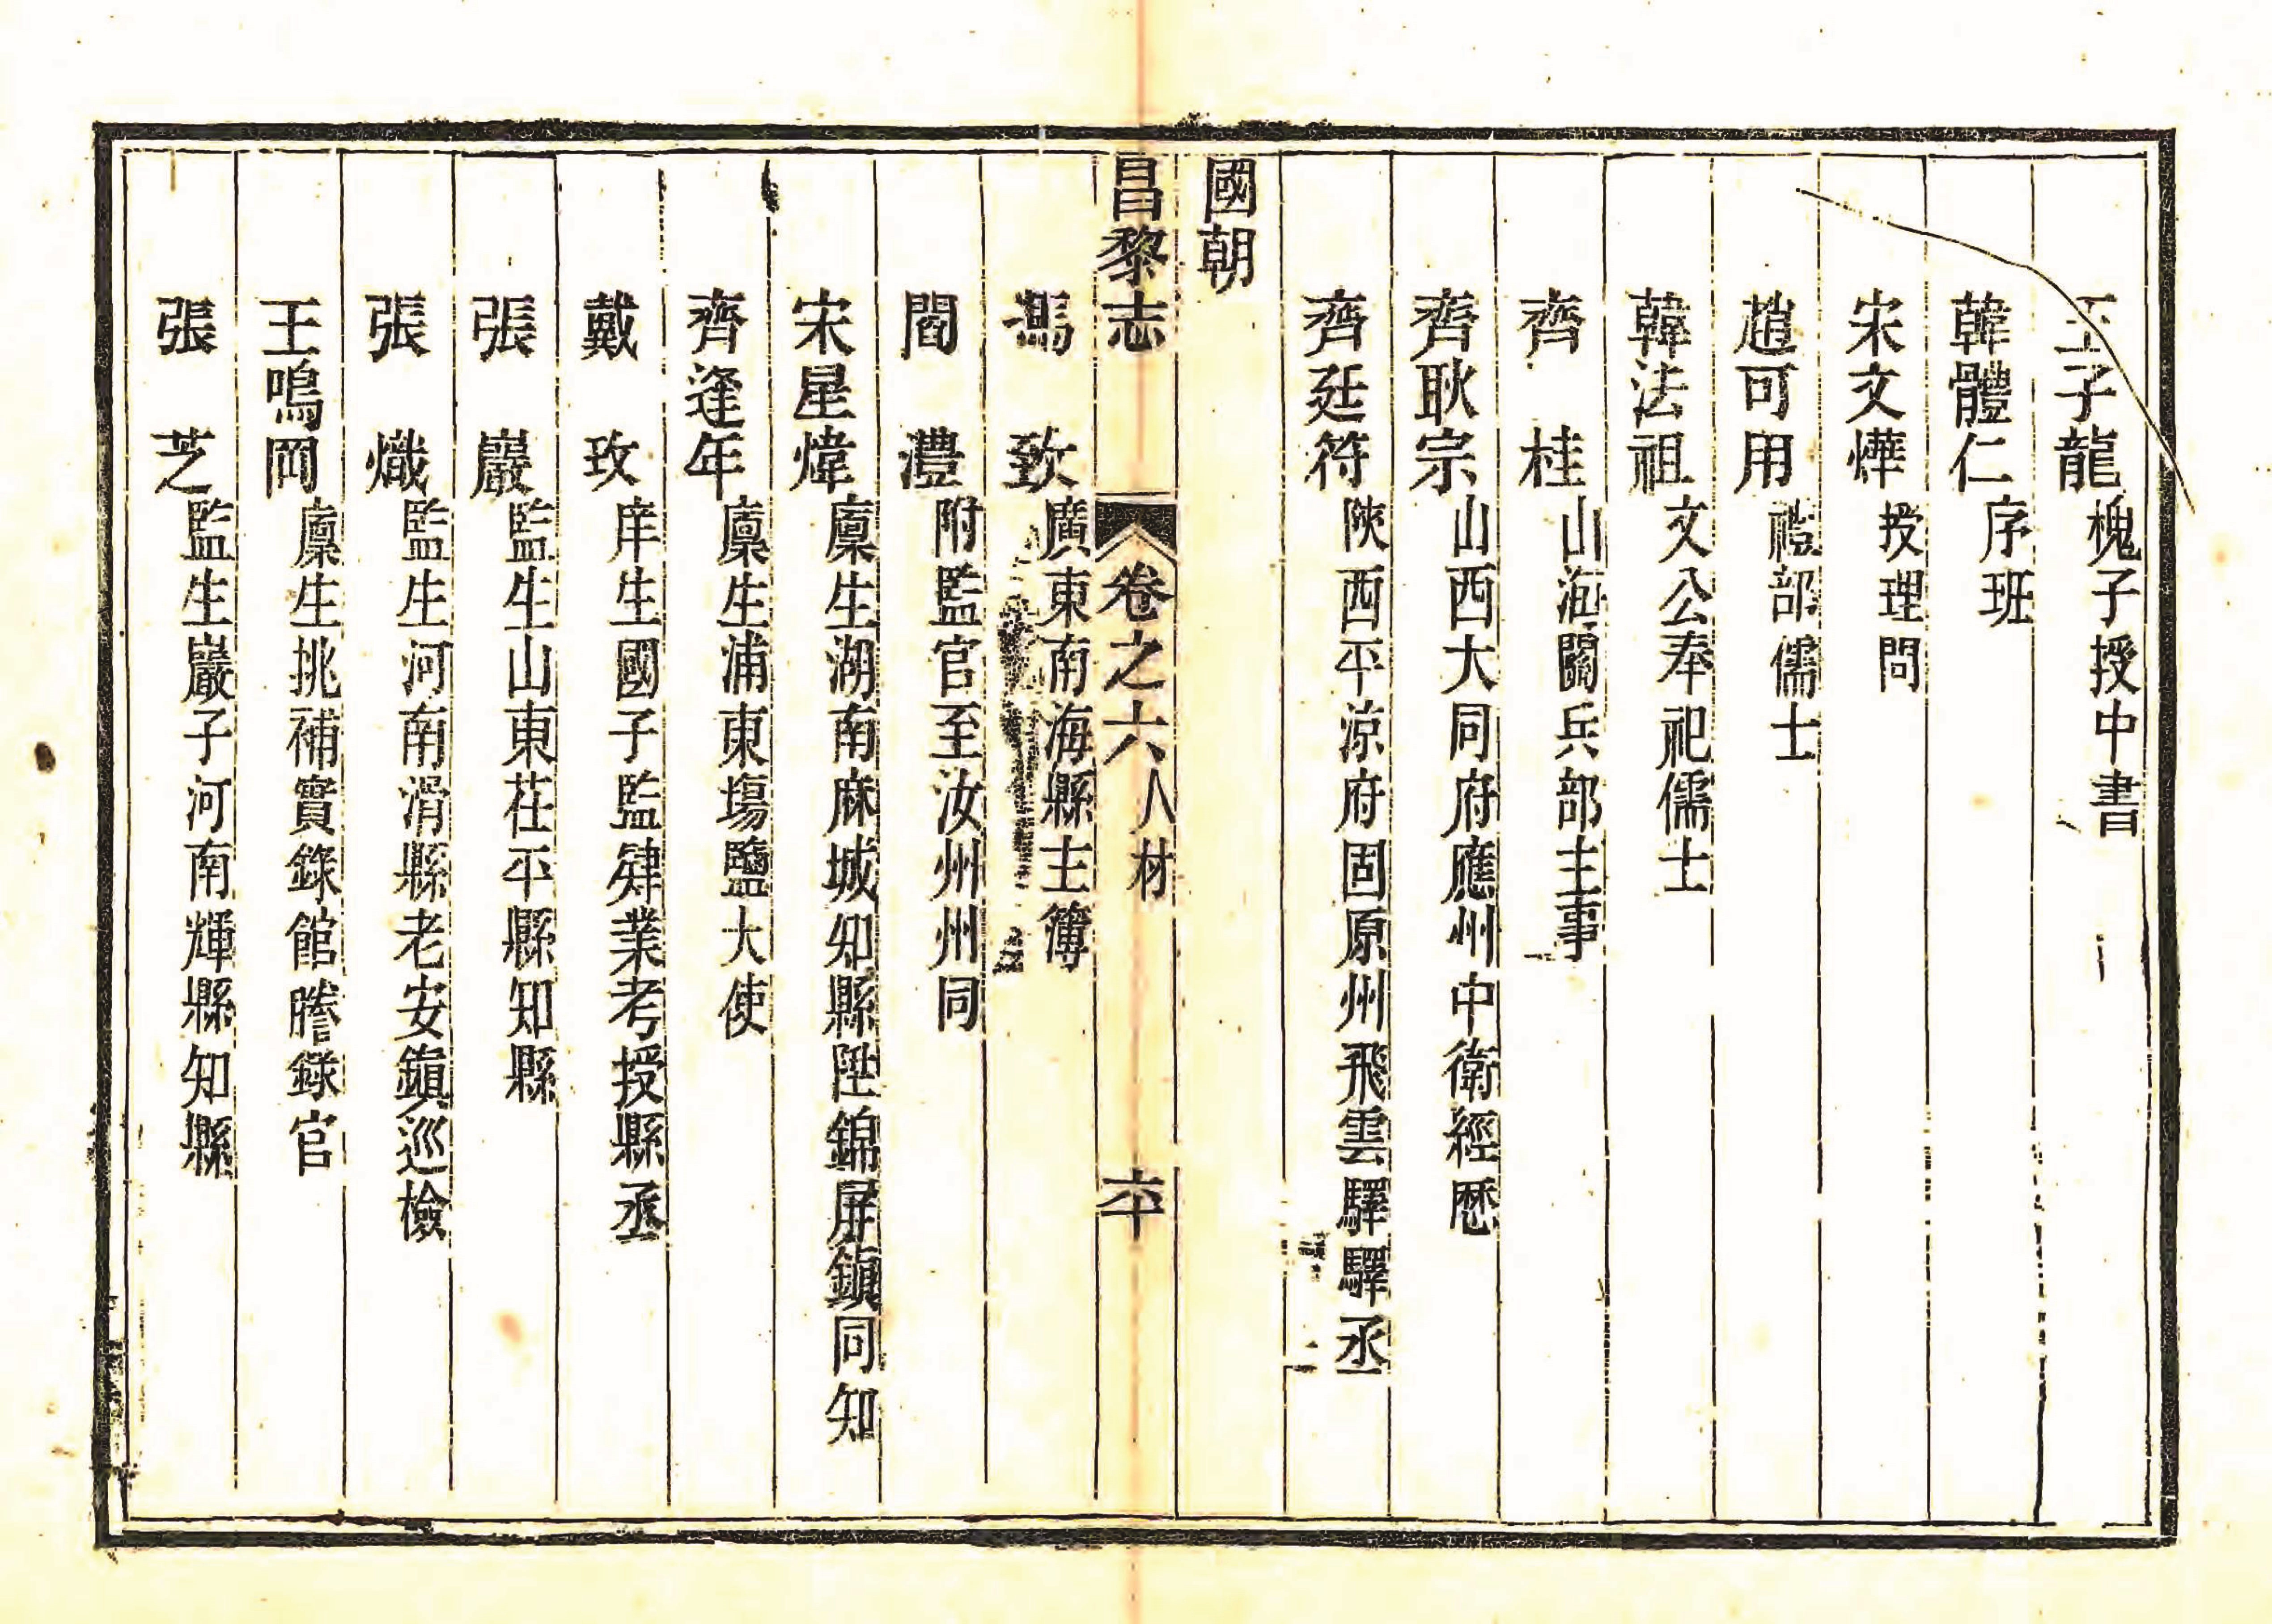 王子龍 槐子授中書
韓體仁 序班
宋文燁 授理問
趙可用 禮部儒士
韓法祖 文公奉祀儒士
齊桂 山海關兵部主事
齊耿宗 山西大同府應州中衛經歷
齊廷符 陝西平涼府固原州飛雲驛驛丞
國朝
昌黎志 卷之六 人材 六十
馮致 廣東南海縣主簿
閻灃 附監官至汝州州同
宋星煒 廩生湖南麻城知縣陞錦屏鎭同知
齊逢年 廩生浦東塲鹽大使
戴玫 庠生國子監肄業考授縣丞
張巖 監生山東茌平縣知縣
張熾 監生河南滑縣老安鎭巡檢
王鳴岡 廩生挑補實錄館謄錄官
張芝 監生巖子河南輝縣知縣